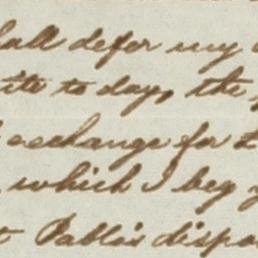 hall defer my
ite to day, the
exchange for £
which I beg y
t Pablo's dispo